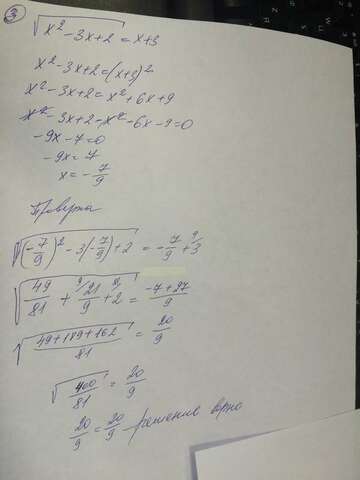 ③
√(x² - 3x + 2) = x + 3
x² - 3x + 2 = (x+3)²
x² - 3x + 2 = x² + 6x + 9
x² - 3x + 2 - x² - 6x - 9 = 0
-9x - 7 = 0
-9x = 7
x = -7/9
Проверка
√((-7/9)² - 3(-7/9) + 2) = -7/9 + 3
√(49/81 + 21/9 + 2) = (-7+27)/9
√((49+189+162)/81) = 20/9
√(400/81) = 20/9
20/9 = 20/9 решение врно